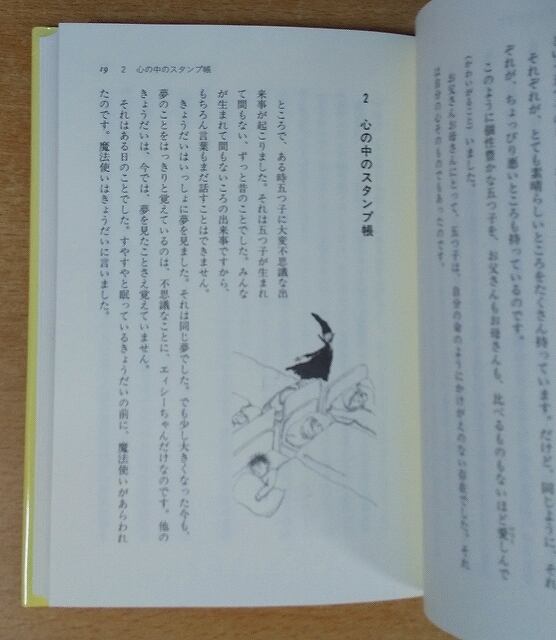 それぞれが、とても素晴らしいところをたくさん持っています。だけど、同じように、それ
ぞれが、ちょっぴり悪いところも持っているのです。
このように個性豊かな五つ子を、お父さんもお母さんも、比べるものもないほど愛しんで
(かわいがること)いました。
お父さんお母さんにとって、五つ子は、自分の命のようにかけがえのない存在でした。また
は自分の心そのものでもあったのです。
19 2 心の中のスタンプ帳
2 心の中のスタンプ帳
ところで、ある時五つ子に大変不思議な出
来事が起こりました。それは五つ子が生まれ
て間もない、ずっと昔のことでした。みんな
が生まれて間もないころの出来事ですから、
もちろん言葉もまだ話すことはできません。
きょうだいはいっしょに夢を見ました。それは同じ夢でした。でも少し大きくなった今も、
夢のことをはっきりと覚えているのは、不思議なことに、エイシーちゃんだけなのです。他の
きょうだいは、今では、夢を見たことさえ覚えていません。
それはある日のことでした。すやすやと眠っているきょうだいの前に、魔法使いがあらわれ
たのです。魔法使いはきょうだいに言いました。